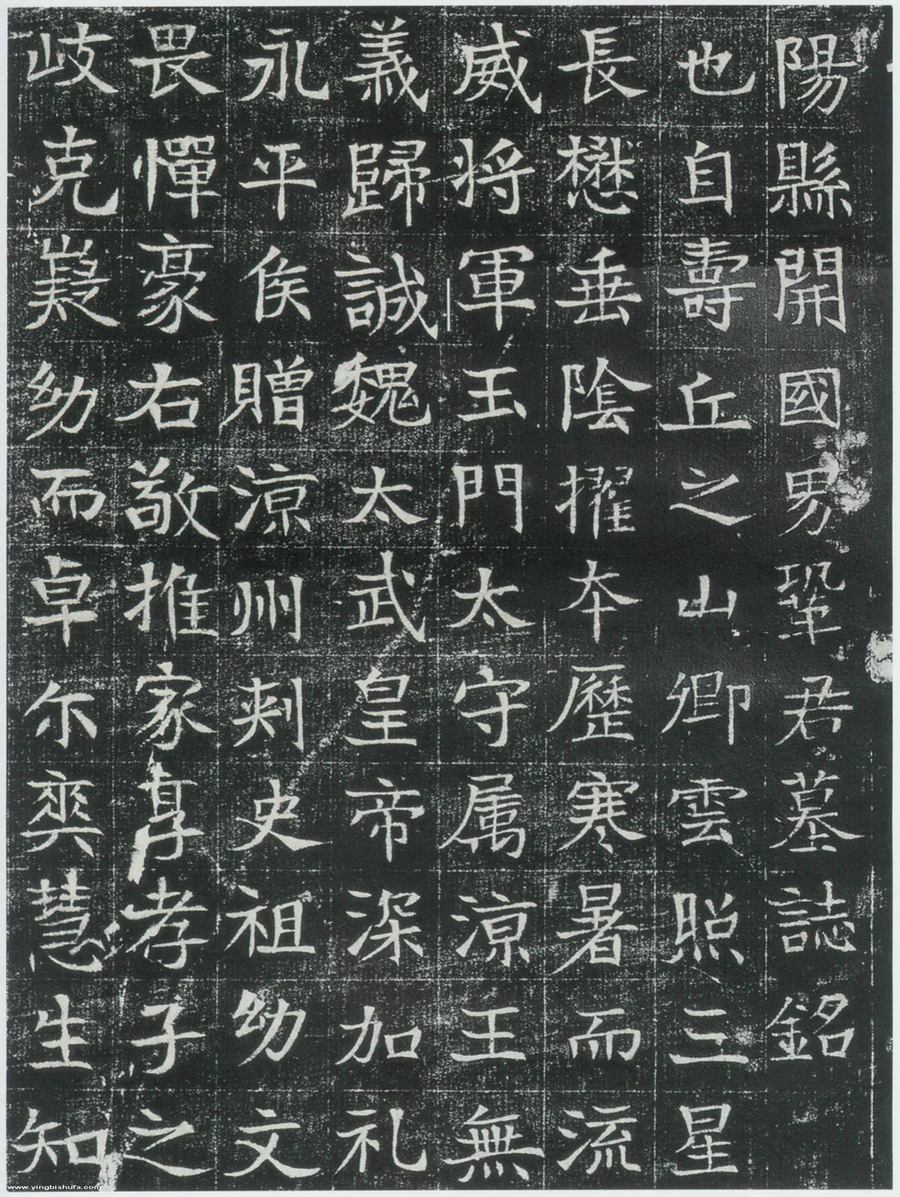 陽縣開國男鞏君墓誌銘
也自壽丘之山卿雲照三星
長懋垂陰擢本歷寒暑而流
威將軍玉門太守属涼王無
義歸誠魏太武皇帝深加礼
永平侯贈涼州刺史祖幼文
畏憚豪右敬推家享孝子之
岐克嶷幼而卓尒奕慧生知
www.yingbishufa.com